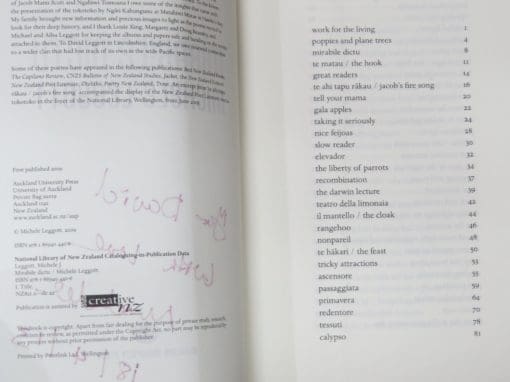 of Jacob Manu Scott and Ngahiwi Tomoana I owe some of the insights that came with
the presentation of the tokotoko by Ngāti Kahungunu at Matahiwi Marae
My family brought new information and precious images to light as the poems
look for their deep history, and I thank Louie King, Margaret and Doug Hendry, and
Michael and Ailsa Leggott for keeping the albums and papers safe and sending
attached to them. To David Leggett in Lincolnshire, England, we owe
to a wider clan that had lost track of its own in the wide Pacific spaces.
Some of these poems have appeared in the following publications: Best New Zealand Poems,
The Capilano Review, CNZS Bulletin of New Zealand Studies, Jacket, the New Zealand Listener,
New Zealand Poet Laureate, Otoliths, Poetry New Zealand, Trout. An excerpt from 'te ahi tapu
rākau / jacob's fire song' accompanied the display of the New Zealand Poet Laureate
tokotoko in the foyer of the National Library, Wellington, from June
First published 2009
Auckland University Press
University of Auckland
Private Bag 92019
Auckland 1142
New Zealand
www.auckland.ac.nz/aup
© Michele Leggott, 2009
ISBN 978 1 86940 440 6
National Library of New Zealand Cataloguing-in-Publication Data
Leggott, Michele J.
Mirabile dictu / Michele Leggott.
ISBN 978 1 86940 440 6
1. Title.
NZ821.2—dc 22
Publication is assisted by creative nz
This book is copyright. Apart from fair dealing for the purpose of private study, research,
criticism or review, as permitted under the Copyright Act, no part may be reproduced
any process without prior permission of the publisher.
Printed by Printlink Ltd, Wellington
work for the living 1
poppies and plane trees 4
mirabile dictu 8
te matau / the hook 11
great readers 14
te ahi tapu rākau / jacob's fire song 16
tell your mama 20
gala apples 22
taking it seriously 24
nice feijoas 28
slow reader 30
elevador 32
the liberty of parrots 34
recombination 37
the darwin lecture 39
teatro della limonaia 42
il mantello / the cloak 44
rangehoo 46
nonpareil 48
te hākari / the feast 50
tricky attractions 53
ascensore 55
passaggiata 59
primavera 64
redentore 70
tessuti 78
calypso 81
David